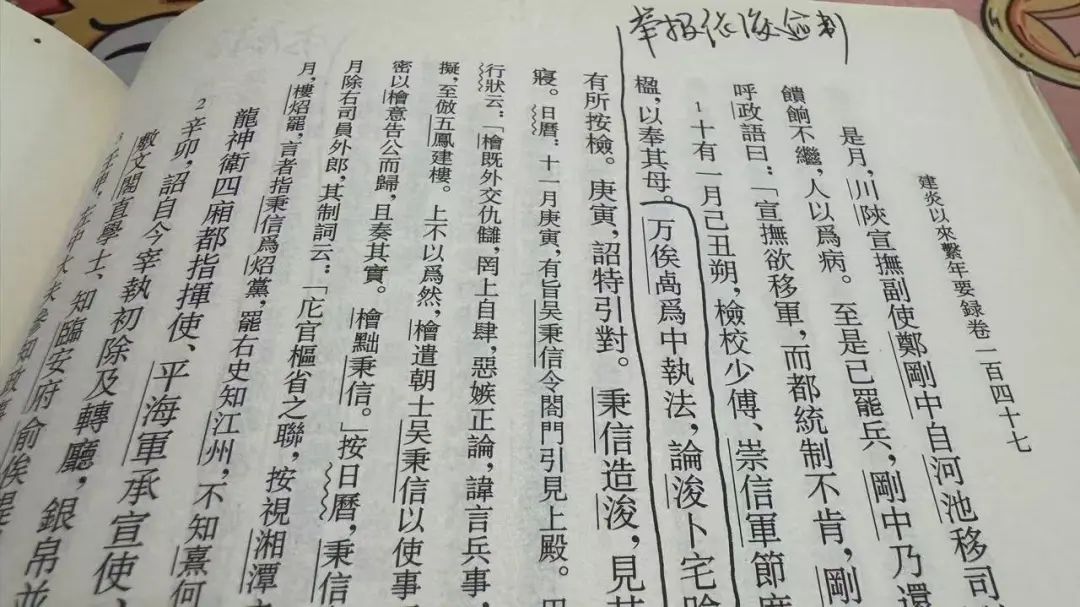 举报依浚逾制
建炎以來繫年要録卷一百四十七
是月，川陝宣撫副使鄭剛中自河池移司
饋餉不繼，人以爲病。至是已罷兵，剛中乃還
呼政語曰：「宣撫欲移軍，而都統制不肯，剛
1 十有一月己丑朔，檢校少傅、崇信軍節度
万俟卨爲中執法，論浚卜宅
楹，以奉其母。
有所按檢。庚寅，詔特引對。秉信造浚，見其
寢。日曆：十一月庚寅，有旨吴秉信令閤門引見上殿。
行狀云：「檜既外交仇讎，罔上自肆，惡嫉正論，諱言兵事，
擬，至倣五鳳建樓。上不以爲然，檜遣朝士吴秉信以使事
密以檜意告公而歸，且奏其實。檜黜秉信。」按日曆，秉信
月除右司員外郎，其制詞云：「庀官樞省之聯，按視湘潭
月，樓炤罷，言者指秉信爲炤黨，罷右史知江州，不知熹何
龍神衛四廂都指揮使、平海軍承宣使
2 辛卯，詔自今宰執初除及轉廳，銀帛並
敷文閣直學士、知臨安府俞俟提
3 壬辰，左中大夫參知政事